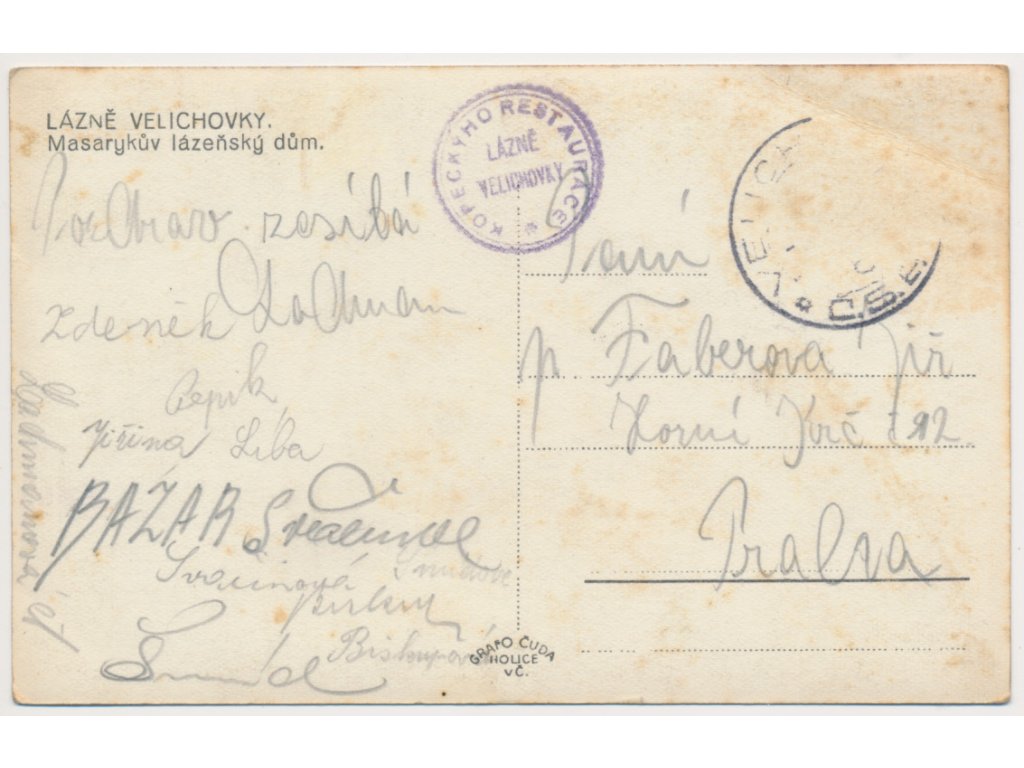 LÁZNĚ VELICHOVKY.
Masarykův lázeňský dům.
KOPECKÝHO RESTAURACE
LÁZNĚ
VELICHOVKY
VELICH
Č.S.
Pozdrav zasílá
Zdeněk Lachman
Pepík
Jiřina Líba
BAŽAR
Biskupová
Paní
p. Faberova Jiř
Horní Krč č 12
Praha
GRAFO ČUDA
HOLICE
V Č.